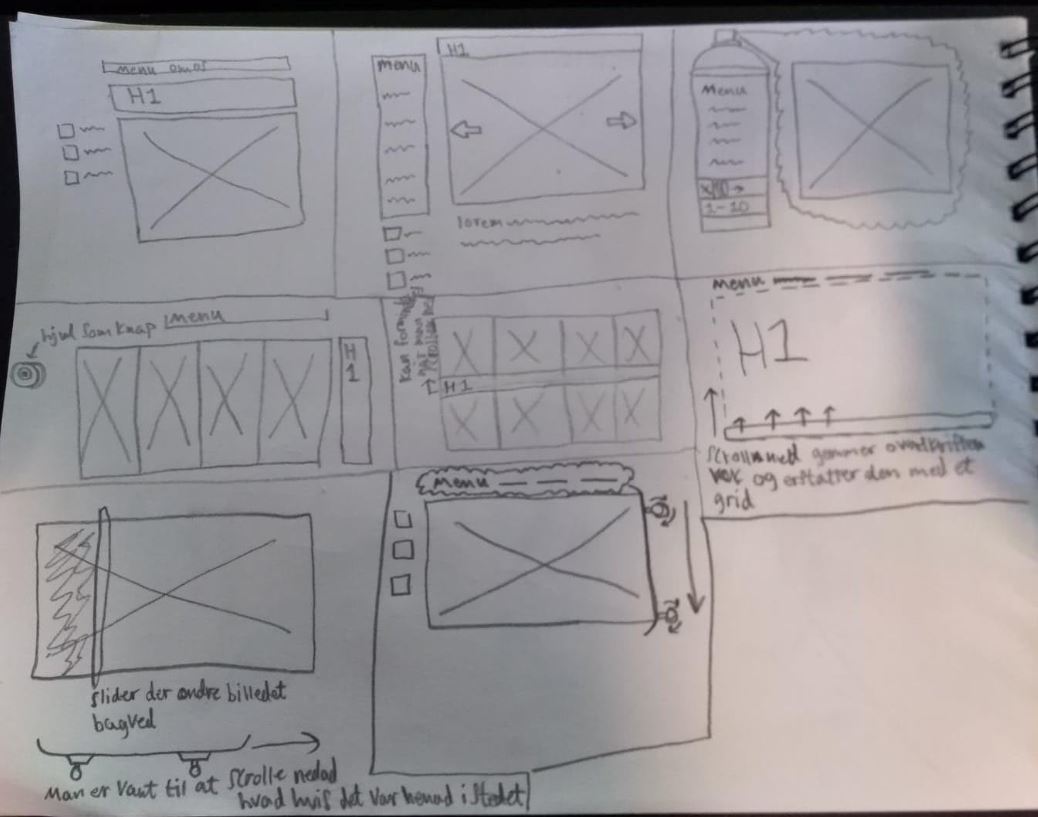 Menu omos
H1
H1
Menu
lorem
Menu
1-10
hjul som knap
Menu
H
1
Kan forminds
når man
scroller ned
H1
Menu
H1
Scroll ned gemmer overskriften
væk og erstatter den med et
grid
Menu
slider der ændre billedet
bagved
Man er vant til at scrolle nedad
hvad hvis det var henad i stedet